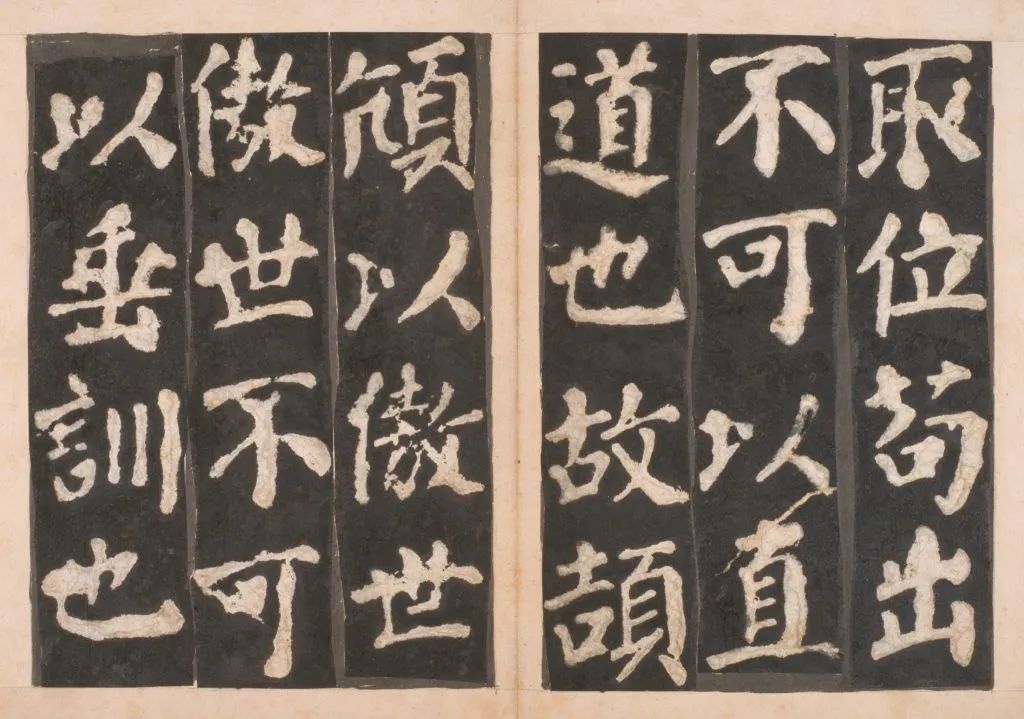 取位苟出
不可以直
道也故頡
頏以傲世
傲世不可
以垂訓也